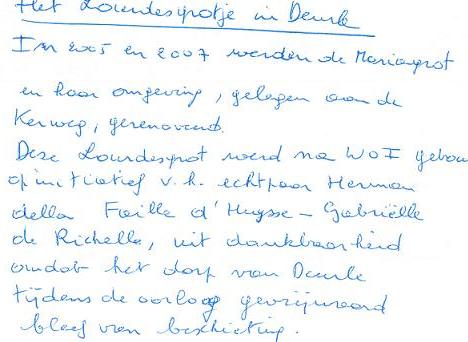 Het Lourdesgrotje in Deurle
In 2005 en 2007 werden de Mariagrot
en haar omgeving, gelegen aan de
Kerweg, gerenoveerd.
Deze Lourdesgrot werd na WO I gebou
op initiatief v.h. echtpaar Herman
della Faille d'Huysse – Gabriëlle
de Richelle, uit dankbaarheid
omdat het dorp van Deurle
tijdens de oorlog gevrijwaard
bleef van beschieting.